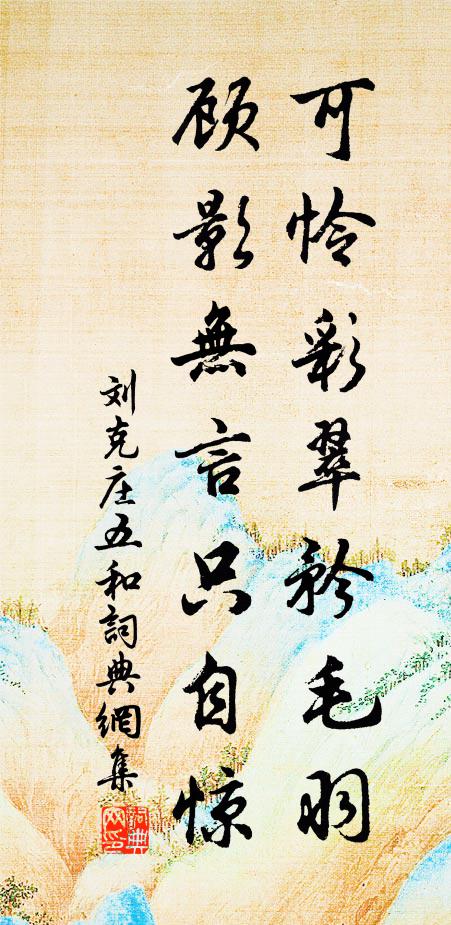 可怜彩翠矜毛羽
顾影無言只自惊
刘克庄五和詞典網集
詞典网印